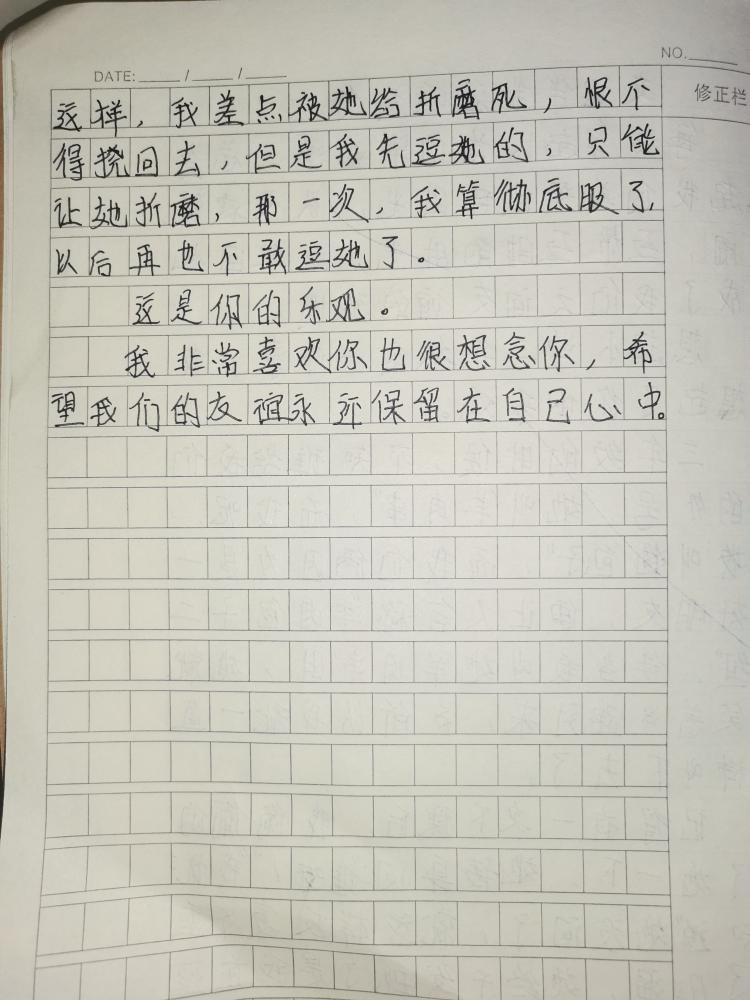 NO.
DATE: / /
修正栏
这样，我差点被她给折磨死，恨不
得挠回去，但是我先逗她的，只能
让她折磨，那一次，我算彻底服了，
以后再也不敢逗她了。
这是你的乐观。
我非常喜欢你也很想念你，希
望我们的友谊永远保留在自己心中。